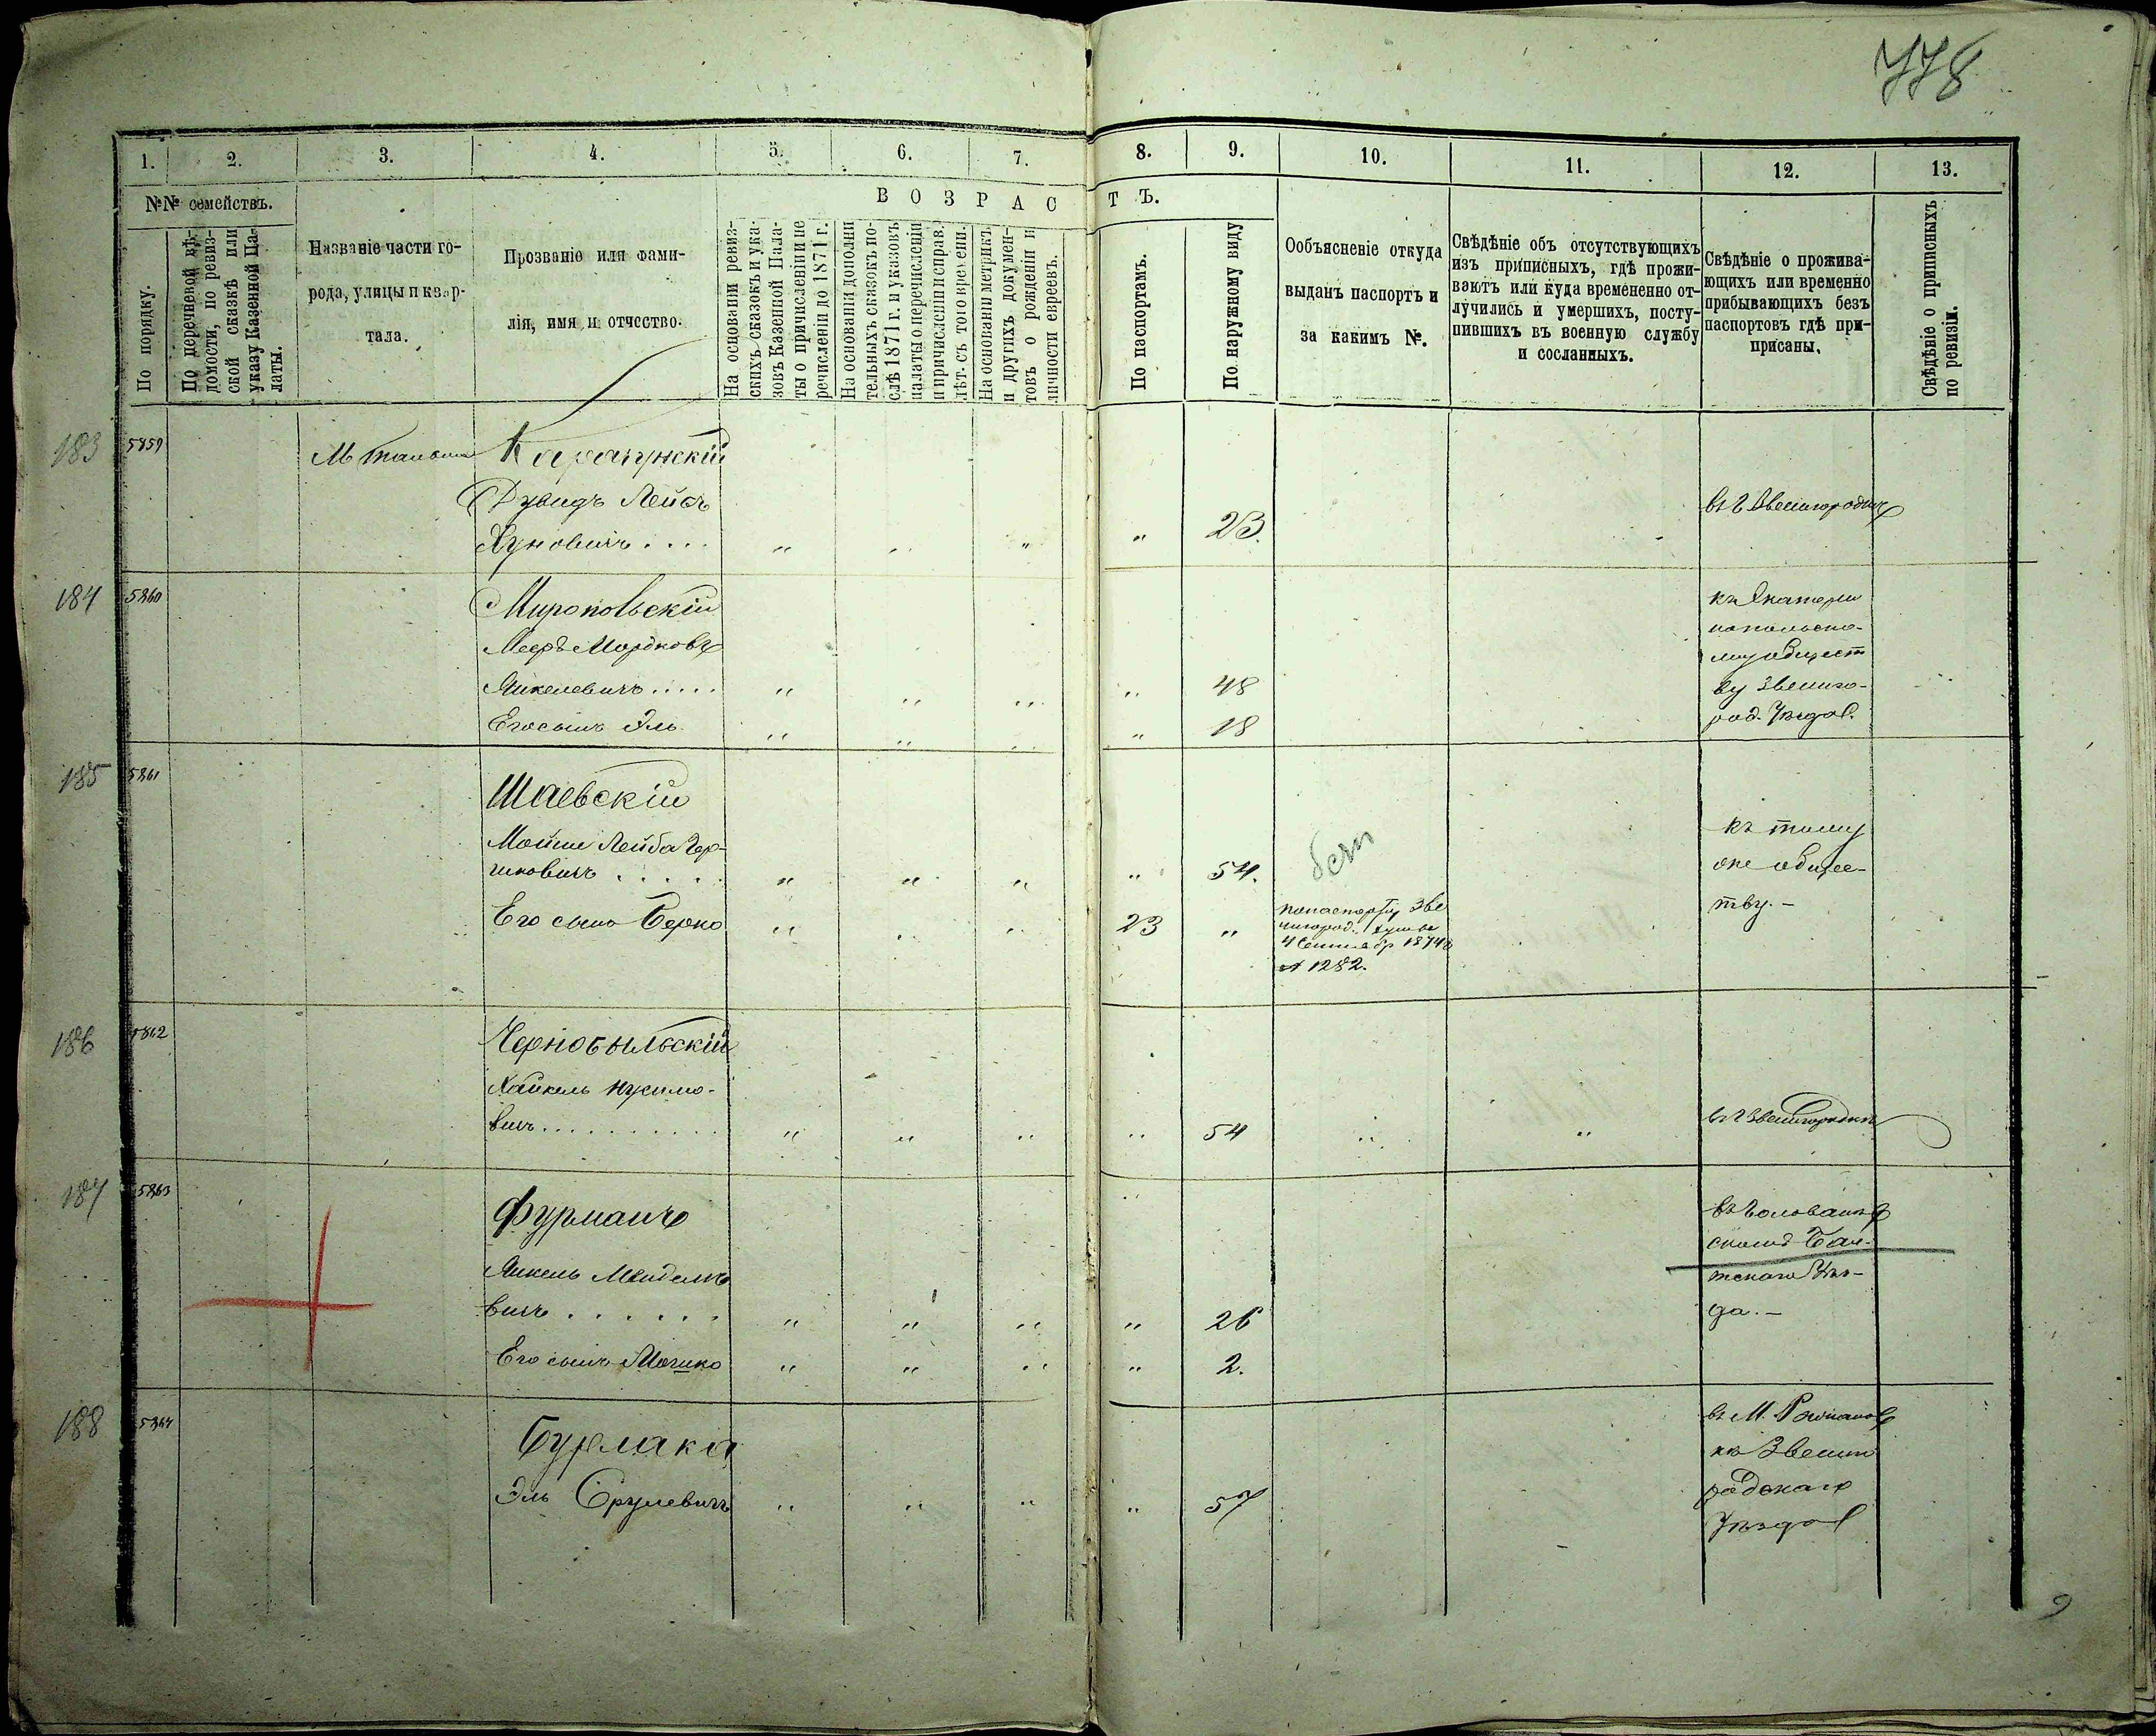 778
1. 2. 3. 4. 5. 6. 7. 8. 9. 10. 11. 12. 13.
№№ семействъ.
По порядку.
По перечневой вѣ-
домости, по ревиз-
ской сказкѣ или
указу Казенной Па-
латы.
Названіе части го-
рода, улицы и квар-
тала.
Прозваніе или фами-
лія, имя и отчество.
ВОЗРАСТЪ.
На основаніи ревиз-
скихъ сказокъ и ука-
зовъ Казенной Пала-
ты о причисленіи и пе
речисленіи до 1871 г.
На основаніи дополни
тельныхъ сказокъ по-
слѣ 1871 г. и указовъ
палаты о перечисленіи
и причисленіи и справ.
лѣт. съ того времени.
На основаніи метрикъ
и другихъ докумен-
товъ о рожденіи и
личности евреевъ.
По паспортамъ.
По наружному виду
Ообъясненіе откуда
выданъ паспортъ и
за какимъ №.
Свѣдѣніе объ отсутствующихъ
изъ приписныхъ, гдѣ прожи-
ваютъ или куда временно от-
лучились и умершихъ, посту-
пившихъ въ военную службу
и сосланныхъ.
Свѣдѣніе о прожива-
ющихъ или временно
прибывающихъ безъ
паспортовъ гдѣ при-
присаны.
Свѣдѣніе о приписныхъ
по ревизіи.
183 5859 Карагунскій
Дувидъ Лейбъ
въ г Звенигородкѣ
Хуновичъ . . . . „ „ „ „ 23.
184 5860 Мироповьскій
къ Екатери
нопольско-
Мееръ Мордковъ
му общест
Янкелевичъ . . . . . „ „ „ „ 48
ву Звениго-
Его сынъ Эль „ „ „ „ 18
род. Уѣзда.
185 5861 Шаевскій
Мойше Лейба Гер-
къ тому
шковичъ . . . . . „ „ „ „ 54.
же общес-
Его сынъ Берко „ „ „ 23 „
по паспорту Зве
нигород. думы
4 Сентябр 1874
№ 1282.
тву. –
186 5862 Чернобыльскій
Хайкель Нухимо-
вичъ . . . . . . . . . . „ „ „ „ 54 „ „ въ г Звенигородкѣ
187 5863 Фурманъ
въ Голованев
скомъ Бал-
Янкель Менделе
тскаго Уѣз-
вичъ . . . . . . „ „ „ „ 26
да. –
Его сынъ Мошко „ „ „ „ 2.
188 5864 Бурлака
въ М.
Эль Срулевичъ „ „ „ „ 57
кѣ Звениго
родскаго
Уѣзда
9